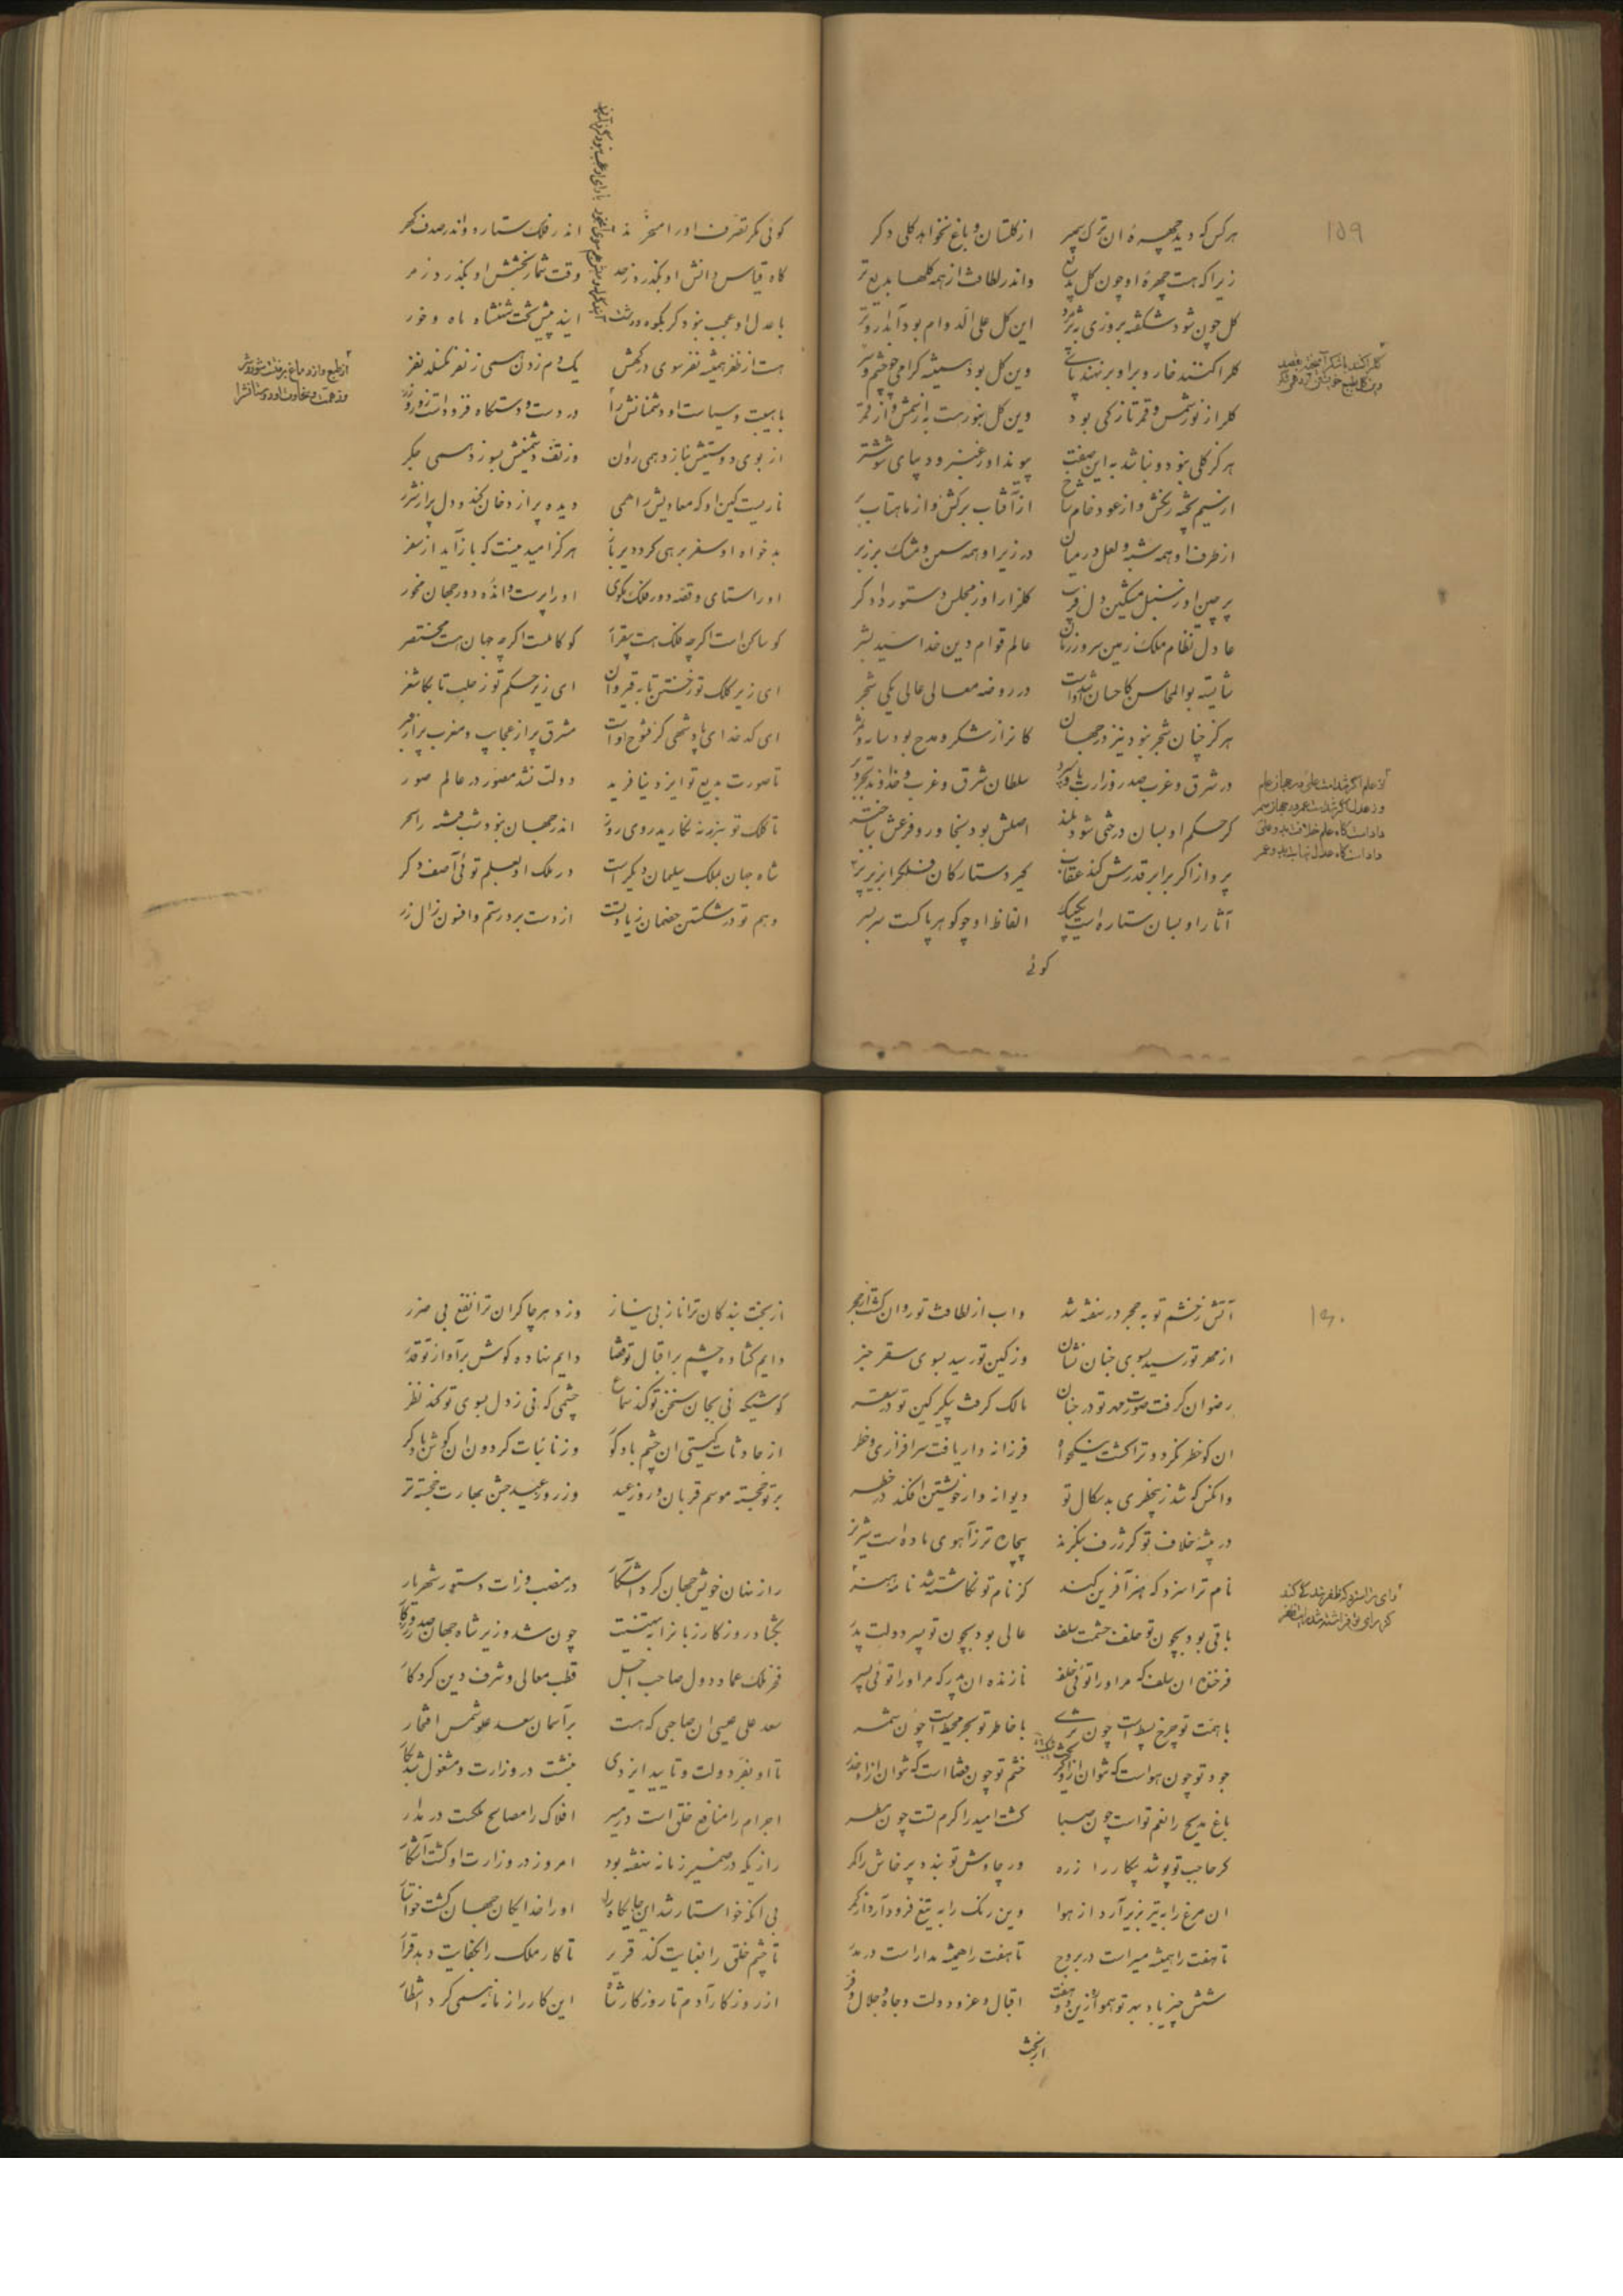 ۱۵۹
هرکس که دید چهره ان ترک سیمبر از گلستان و باغ نخواهد گلی دکر
زیرا که هست چهره او چون کل بدیع واندر لطافت از همه کلها بدیع تر
کل چون شود شکفته بروزی بپژمرد این کل علی الدوام بود آبدار و تر
کلرا کنند خار و برا و بر نهند پای وین کل بود همیشه کرامی چو چشم و سر
کلرا ز نور شمس و قمر تازکی بود وین کل بنور هست به از شمس و از قمر
هرکز کلی نبود و نباشد به این صفت پیوند او ز عنبر و دیبای شوشتر
از سیم پخته رنکش و از عود خام شاخ از آفتاب برکش و از ماهتاب بر
از طرف او همه شبه و لعل در میان در زیر او همه سمن و مشک بر زبر
پرچین او ز سنبل مشکین دل فریب کلزار او ز مجلس دستور دادکر
عادل نظام ملک زمین سرور زمان عالم قوام دین خدا سید بشر
شایسته بوالمحاسن کاحسان شدست در روضه معالی عالی یکی شجر
هرکز چنان شجر نبود نیز در جهان کانرا ز شکر و مدح بود سایه و ثمر
در شرق و غرب صدر وزارت بدو سپرد سلطان شرق و غرب و خداوند بحر و بر
کر حکم او بسان درختی شود بلند اصلش بود بنجا ور و فرعش بباختر
پرواز اگر برابر قدرش کند عقاب کیرد ستارکان فلکرا بزیر پر
آثار او بسان ستاره است یک بیک الفاظ او چو کوهر پاکست سربسر
کوئی
کلرا کنند با شکر آمیخته بقصد
آن علم اگر شدست علی در جهان علم
ور عدل اگر شدست عمر در جهان سمر
دادست کاه علم خلافت بدو علی
دادست کاه عدل نیابت بدو عمر
کوئی مکر تصرف او را مسخرند اندر فلک ستاره و اندر صدف کهر
کاه قیاس دانش او بکذرد ز حد وقت شمار بخشش او بکذرد ز مر
با عدل او عجب نبود کر بکوه و دشت آیند پیش تخت شهنشاه ماه و خور
هست از ظفر همیشه نفر سوی درکهش یک دم زدن همی ز نفر نکسلد نفر
با هیبت و سیاست او دشمنانش را در دست و دستکاه فزودست زور و زر
از بوی دوستیش بنازد همی روان وز تف دشمنیش بسوزد همی جکر
ناریست کین او که معادیش را همی دیده پر از دخان کند و دل پر از شرر
بدخواه او سفر برهی کرد دیرباز هرکز امید نیست که باز آید از سفر
او را ستای و قصه دور فلک مکوی او را پرست و انده دور جهان مخور
کو ساکن است اکرچه فلک هست بیقرار کو کاملست اکرچه جهان هست مختصر
ای زیر کلک تو ز ختن تا به قیروان ای زیر حکم تو ز حلب تا بکاشغر
ای کدخدای پادشهی کز فتوح اوست مشرق پر از عجایب و مغرب پر از عبر
تا صورت بدیع تو ایزد نیافرید دولت نشد مصور در عالم صور
تا کلک تو بزد نه نکارید روی روز اندر جهان نبود شب فتنه را سحر
شاه جهان بملک سلیمان دیکرست در ملک او بعلم توئی آصف دکر
وهم تو در شکستن خصمان زیادتست از دست برد رستم و افسون زال زر
۱۶۰
آتش ز خشم تو به حجر در نهفته شد واب از لطافت تو روان کشت از حجر
از مهر تو رسید بسوی جنان نشان وز کین تو رسید بسوی سقر خبر
رضوان کرفت صورت مهر تو در جنان مالک کرفت پیکر کین تو در سقر
ان کو خطر نکرد و ترا کشت نیکخواه فرزانه وار یافت سرافرازی و خطر
وانکس که شد ز بیخطری بدسکال تو دیوانه وار خویشتن افکند در خطر
در بیشه خلاف تو کر ژرف بنکرند بیچاره تر ز آهوی ماده است شیر نر
نام ترا سزد که هنر آفرین کند کز نام تو نکاشته شد نامه هنر
باقی بود بچون تو خلف حشمت سلف عالی بود بچون تو پسر دولت پدر
فرخنده ان سلف که مر او را توئی خلف نازنده ان پدر که مر او را توئی پسر
با همت تو چرخ بسیط است چون ثری با خاطر تو بحر محیط است چون شمر
جود تو چون هواست که نتوان ازو کریز خشم تو چون قضا است که نتوان ازو حذر
باغ مدیح را نعم تو است چون صبا کشت امید را کرم تست چون مطر
کر حاجب تو پوشد پیکار را زره ور چاوش تو بندد پرخاش را کمر
ان مرغ را به تیر بزیر آرد از هوا وین رنک را به تیغ فرود آرد از کمر
تا هفت را همیشه مسیر است در بروج تا هفت را همیشه مدار است در مدر
شش چیز باد بهر تو هموار زین دو هفت اقبال و عز و دولت و جاه و جلال و فر
از بخت
از بخت بندکان ترا ناز بی نیاز وز دهر چاکران ترا نفع بی ضرر
دایم کشاده چشم بر اقبال تو قضا دایم نهاده کوش بر آواز تو قدر
کوشیکه نی بجان سخن تو کند سماع چشمی که نی ز دل بسوی تو کند نظر
از حادثات کیتی ان چشم باد کور وز نائبات کردون ان کوش باد کر
بر تو خجسته موسم قربان و روز عید وز روز عید جشن بهارت خجسته تر
راز نهان خویش جهان کرد آشکار در منصب وزارت دستور شهریار
بکشاد روزکار زبانرا به تهنیت چون شد وزیر شاه جهان صدر روزکار
فخر ملک عماد دول صاحب اجل قطب معالی و شرف دین کردکار
سعد علی عیسی ان صاحبی که هست بر آسمان سعد علو شمس افتخار
تا او بفر دولت و تایید ایزدی بنشست در وزارت و مشغول شد بکار
اجرام را منافع خلق است در مسیر افلاک را مصالح ملکست در مدار
رازیکه در ضمیر زمانه نهفته بود امروز در وزارت او کشت آشکار
بی آنکه خواستار شد این جایکاه را او را خدایکان جهان کشت خواستار
تا چشم خلق را بعنایت کند قریر تا کار ملک را بکفایت دهد قرار
از روزکار آدم تا روزکار شاه این کار را زمانه همی کرد انتظار